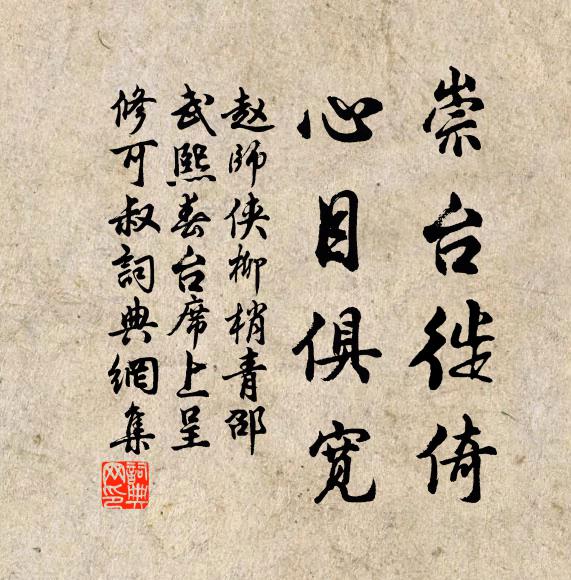 崇台徙倚
心目俱宽
赵师侠柳梢青邵
武熙春台席上呈
修可叔詞典網集
詞典网印